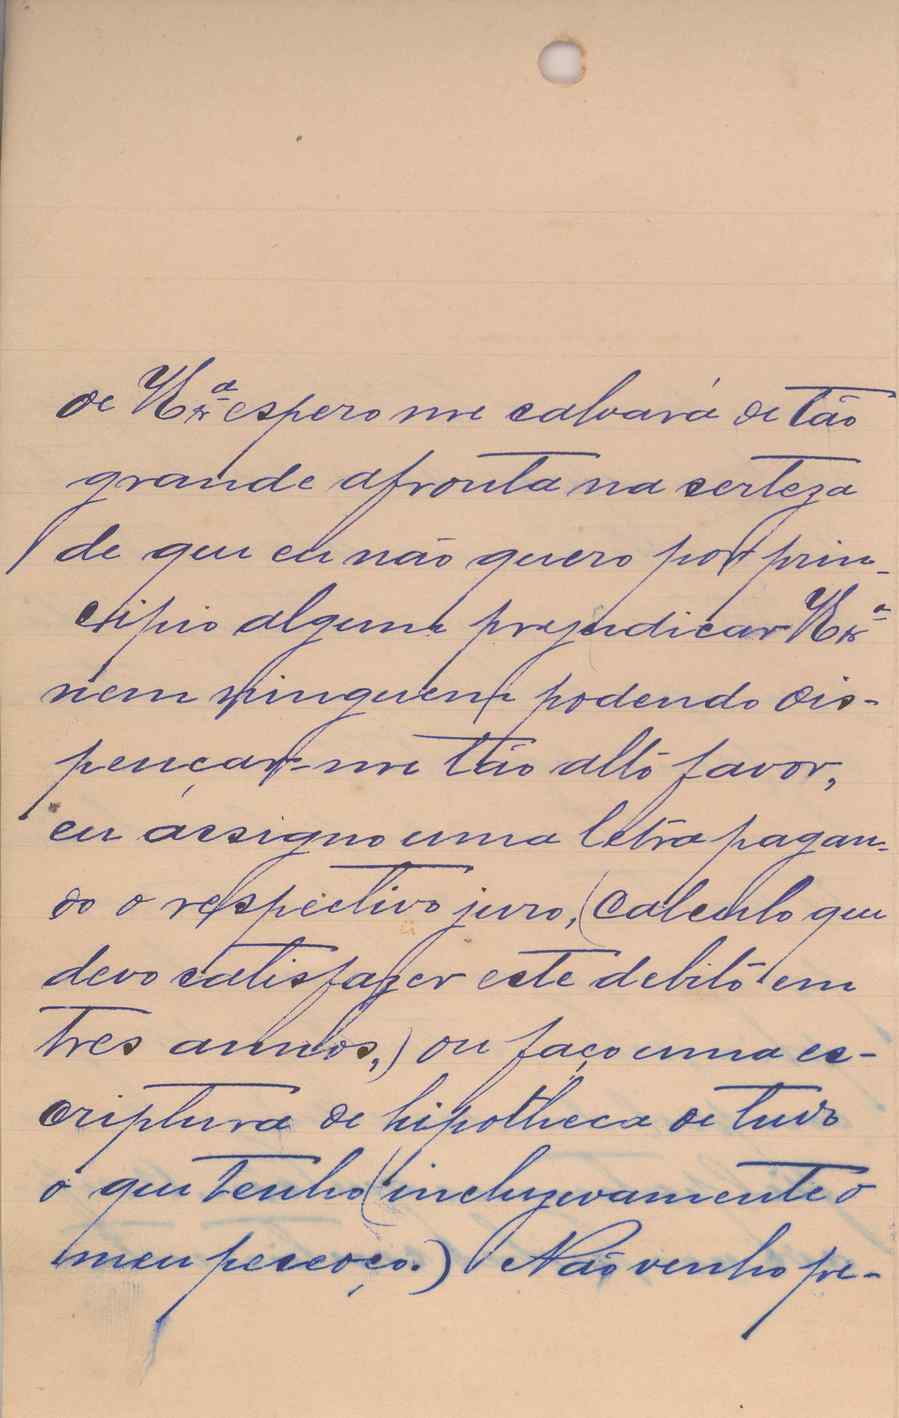 de V Exª espero me salvará de tão
grande afronta na serteza
de que eu não quero por prin-
cipio algum prejudicar V Exª
nem ninguem podendo dis-
pençar-me tão alto favor,
eu ássigno uma letra pagan-
do o respectivo juro, (Calculo que
devo satisfazer este debito em
tres annos,) ou faço uma es-
criptura de hipotheca de tudo
o que tenho (incluzevamente o
meu pescoço.) Não venho pe-